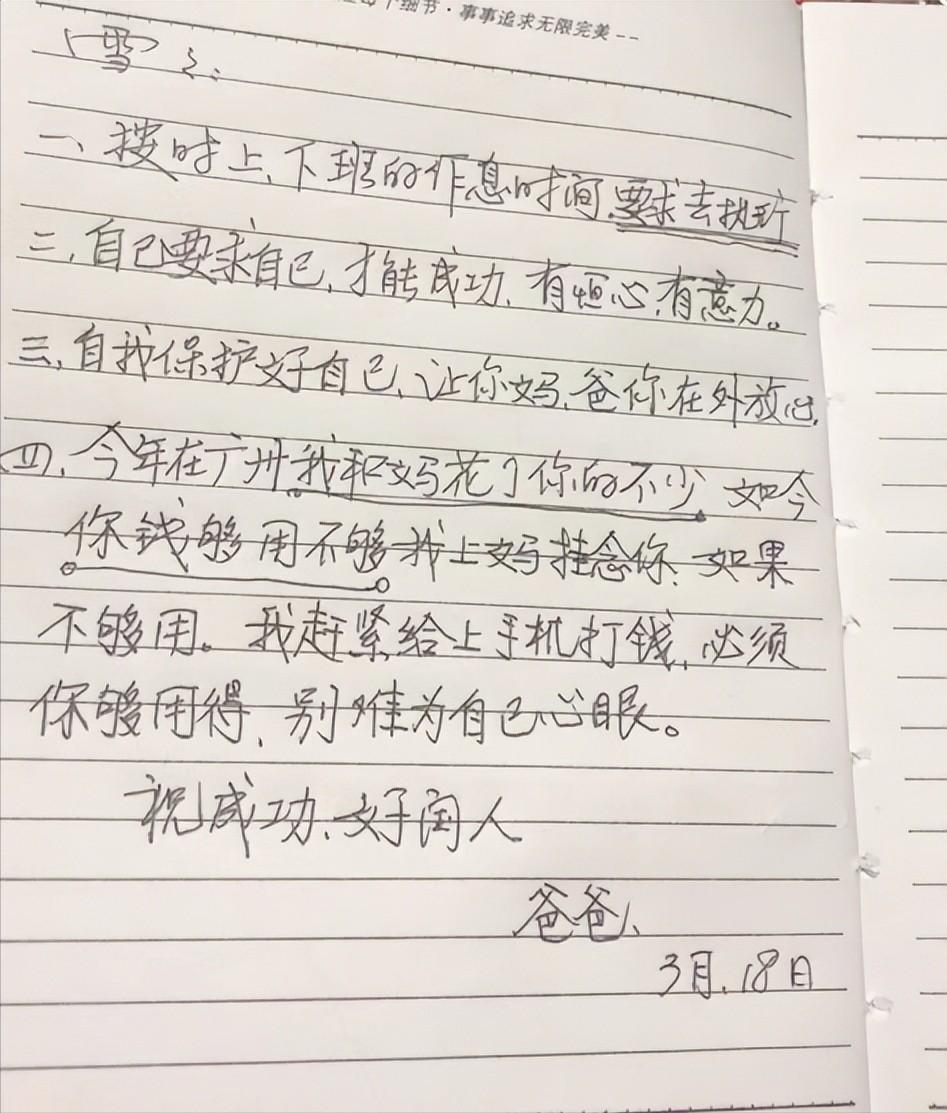 个细节·事事追求无限完美--
雪
一、按时上、下班的作息时间要求去执行
二、自己要求自己、才能成功、有恒心、有意力。
三、自我保护好自己、让你妈、爸你在外放心、
四、今年在广州我和妈花了你的不少 如今
你钱够用不够我上妈挂念你、如果
不够用。我赶紧给上手机打钱、必须
保够用得、别难为自己心眼。
祝成功、好闺人
爸爸、
3月、18日